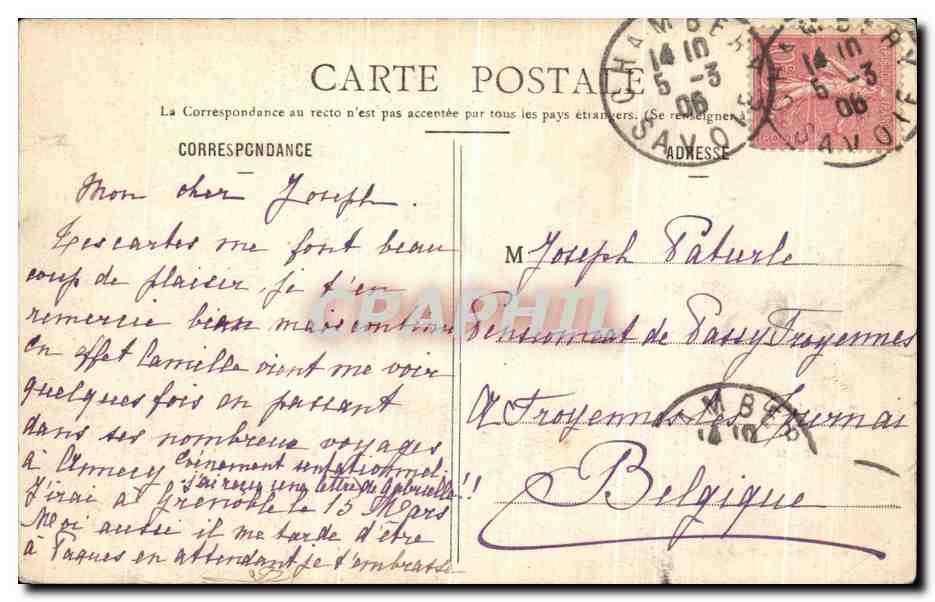 CARTE POSTALE
La Correspondance au recto n'est pas acceptée par tous les pays étrangers. (Se renseigner à
CORRESPONDANCE
Mon cher Joseph.
Tes cartes me font beau
coup de plaisir, je t'en
remercie bien mais continue
En effet Camille vient me voir
quelques fois en passant
dans ses nombreux voyages
à Annecy Evènement sensationnel
J'ai reçu une lettre de Gabrielle!!!
J'irai à Grenoble le 13 Mars
Moi aussi il me tarde d'être
à Paques en attendant je t'embrasse
ADRESSE
M Joseph Paturle
Pensionnat de Passy Froyennes
A Froyennes les Tournai
Belgique
CHAMBERY
14 10
5 -3
06
SAVOIE
CHAMBERY
14 10
5 -3
06
SAVOIE
MBER
14 10
CPARHTL